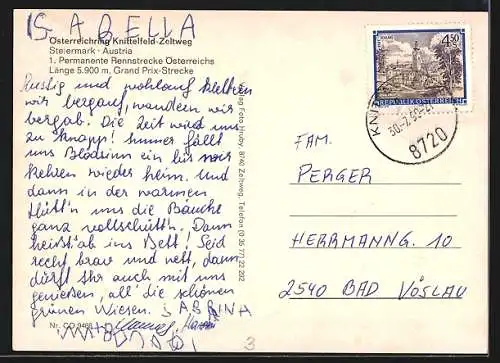 ISABELLA
Österreichring Knittelfeld-Zeltweg
Steiermark - Austria
1. Permanente Rennstrecke Österreichs
Länge 5.900 m, Grand Prix-Strecke
Lustig und klettern
wir bergauf, wandern wir
bergab. Die Zeit wird uns
zu knapp! Immer fällt
uns Blödsinn ein bis wir
kehren wieder heim. Und
dann in der warmen
Hütt'n uns die Bäuche
ganz vollschütt'n. Dann
heisst ab ins Bett! Seid
recht brav und nett, dann
dürft Ihr auch mit uns
genießen, all die schönen
grünen Wiesen. SABRINA
Nr. CO 9468
Foto Hruby, 8740 Zeltweg, Telefon (0 35 77) 22 292
4.50
REPUBLIK ÖSTERREICH
8720
FAM.
PERGER
HERRMANNG. 10
2540 BAD VÖSLAU
3